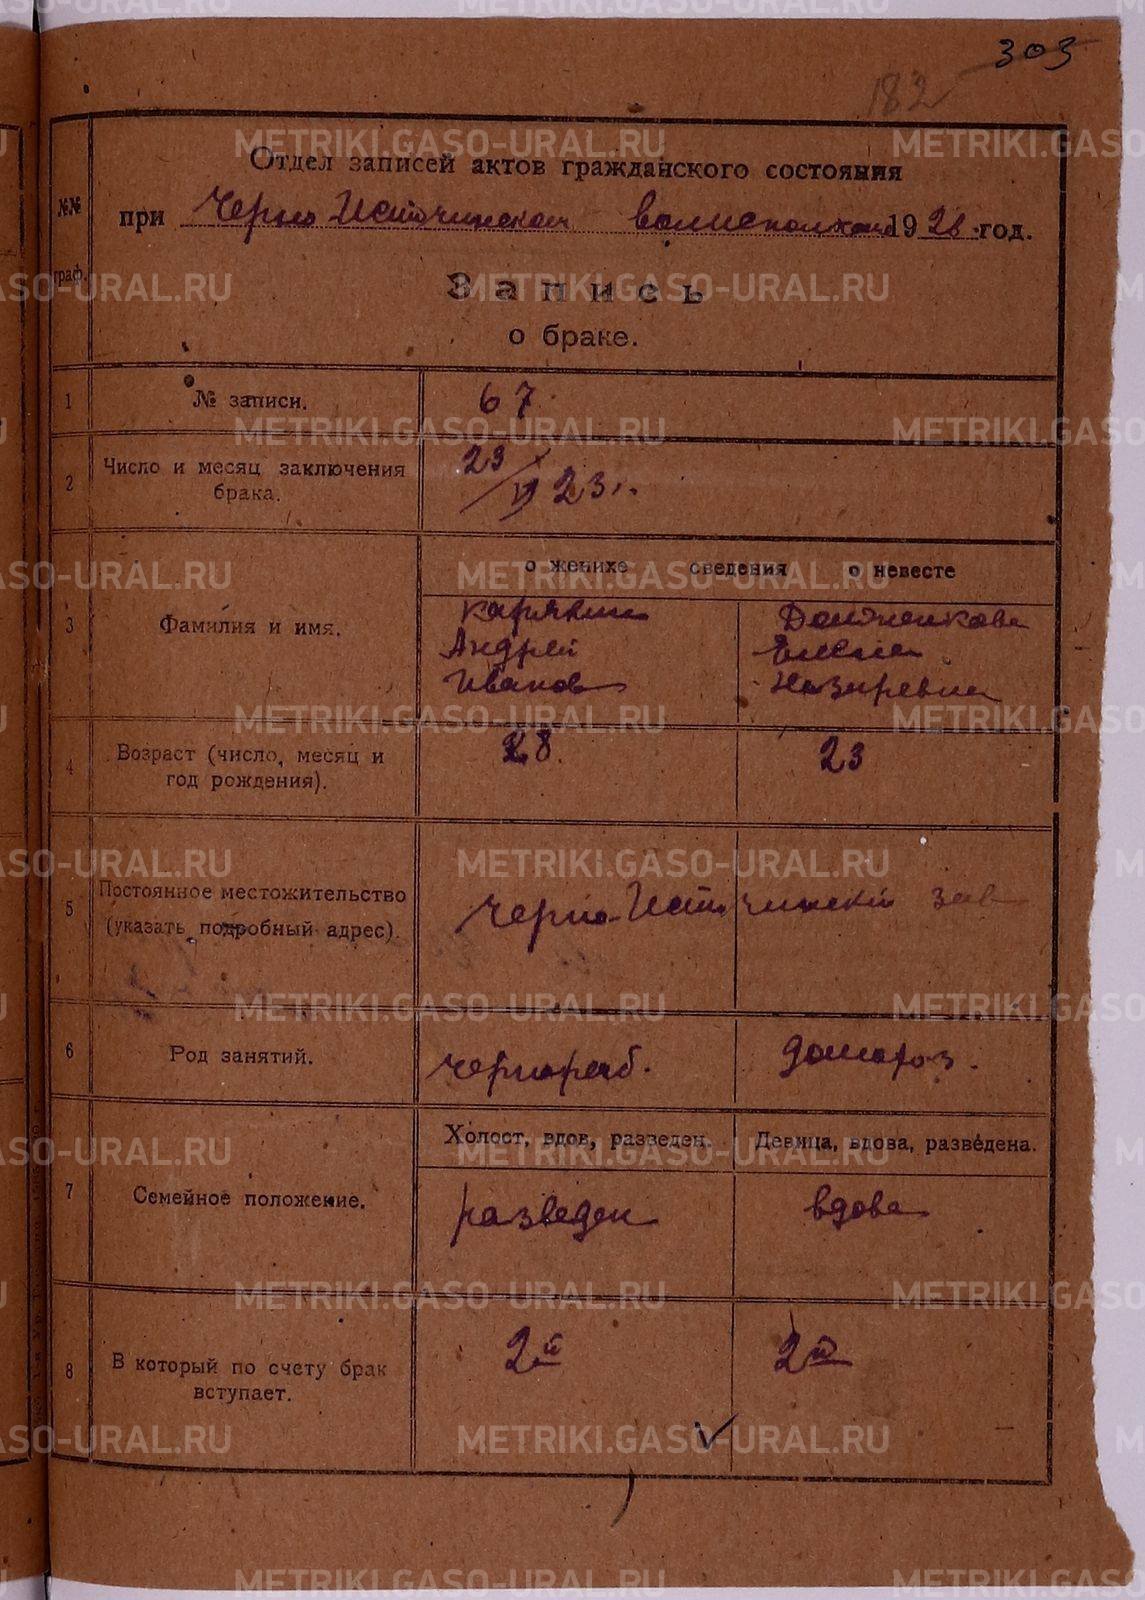 303
182
Отдел записей актов гражданского состояния
при Черно Источинском волисполкоме 1923 год.
№№
граф.
Запись
о браке.
1 № записи. 67
2 Число и месяц заключения брака. 23/VI 23 г.
о женихе сведения о невесте
3 Фамилия и имя.
Карякин
Андрей
Иванов
Елена
Назаревна
4 Возраст (число, месяц и
год рождения). 28. 23
5 Постоянное местожительство
(указать подробный адрес). Черно-Источинский зав
6 Род занятий. чернораб. домохоз.
Холост, вдов, разведен. Девица, вдова, разведена.
7 Семейное положение. разведен вдова
8 В который по счету брак
вступает. 2й 2й
METRIKI.GASO-URAL.RU